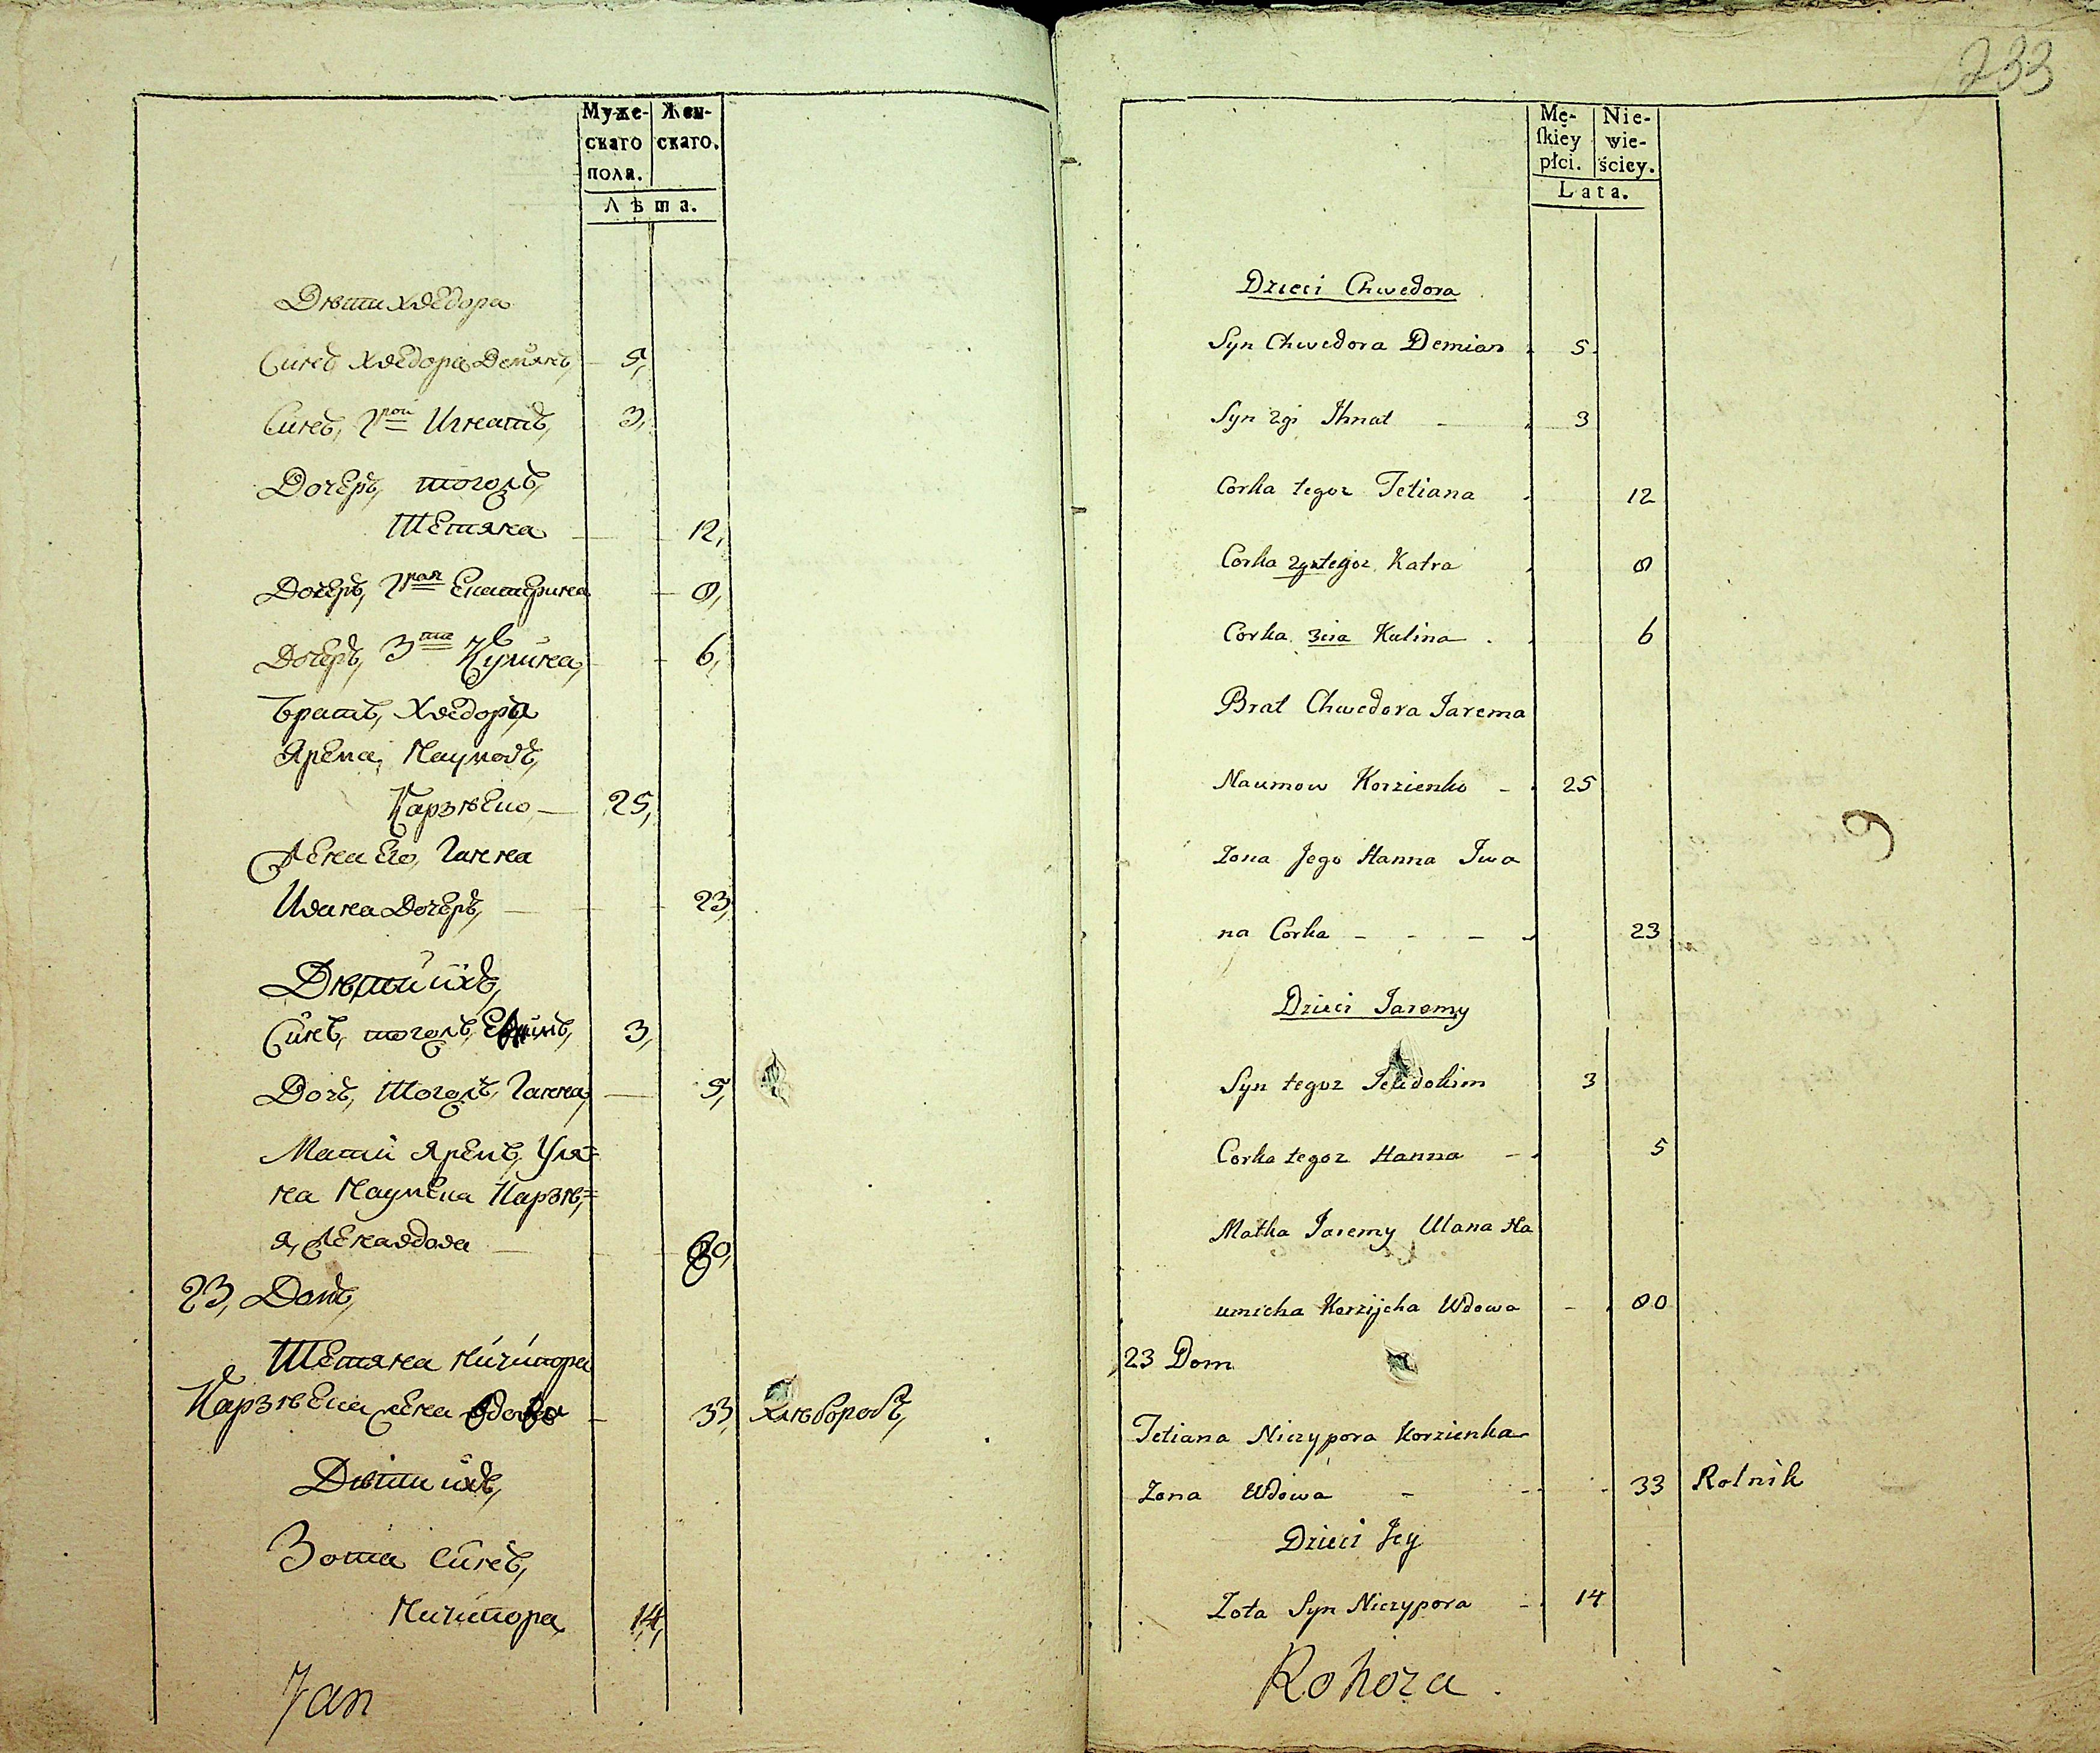 Муже-
скаго
пола.
Жен-
скаго.
Лѣта.
Дѣти Хведора
Синъ Хведора Демянъ, 5,
Синъ, 2рой Игнатъ, 3,
Дочеръ, тогожъ,
Тетяна 12,
Дочеръ, 2рая Екатерина 8,
Дочеръ, 3тя Кулина, 6,
Братъ, Хведора
Ярема, Наумовъ,
Карзѣенко 25,
Жена Его, Ганна
Ивана Дочеръ, 23,
Дѣти ихъ,
Синъ, тогожъ, 3,
Дочъ, Тогожъ, Ганна, 5,
Мати Яремъ, Уля=
на Наумиха Карзѣ,=
я, Жена вдова 80,
23, Домъ,
Тетяна Ничипора
Карзѣенка жена вдова 33, хлѣборобъ,
Дѣти ихъ,
Зота синъ,
Ничипора 14,
Jan
233
Mę-
ſkiey
płci.
Nie-
wie-
ściey.
Lata.
Dzieci Chwedora
Syn Chwedora Demian 5
Syn 2gi Ihnat 3
Corka tegoz Tetiana 12
Corka 2ga tegoz Katra 8
Corka 3cia Kulina 6
Brat Chwedora Jarema
Naumow Korzienko 25
Zona Jego Hanna Iwa
na Corka 23
Dzieci Jaremy
Syn tegoz Jeudokim 3
Corka tegoz Hanna 5
Matka Jaremy Ulana Na
umicha Korzijcha Wdowa 80
23 Dom
Tetiana Niczypora Korzienka
Zona Wdowa 33 Rolnik
Dzieci Jey
Zota Syn Niczypora 14
Rohoza